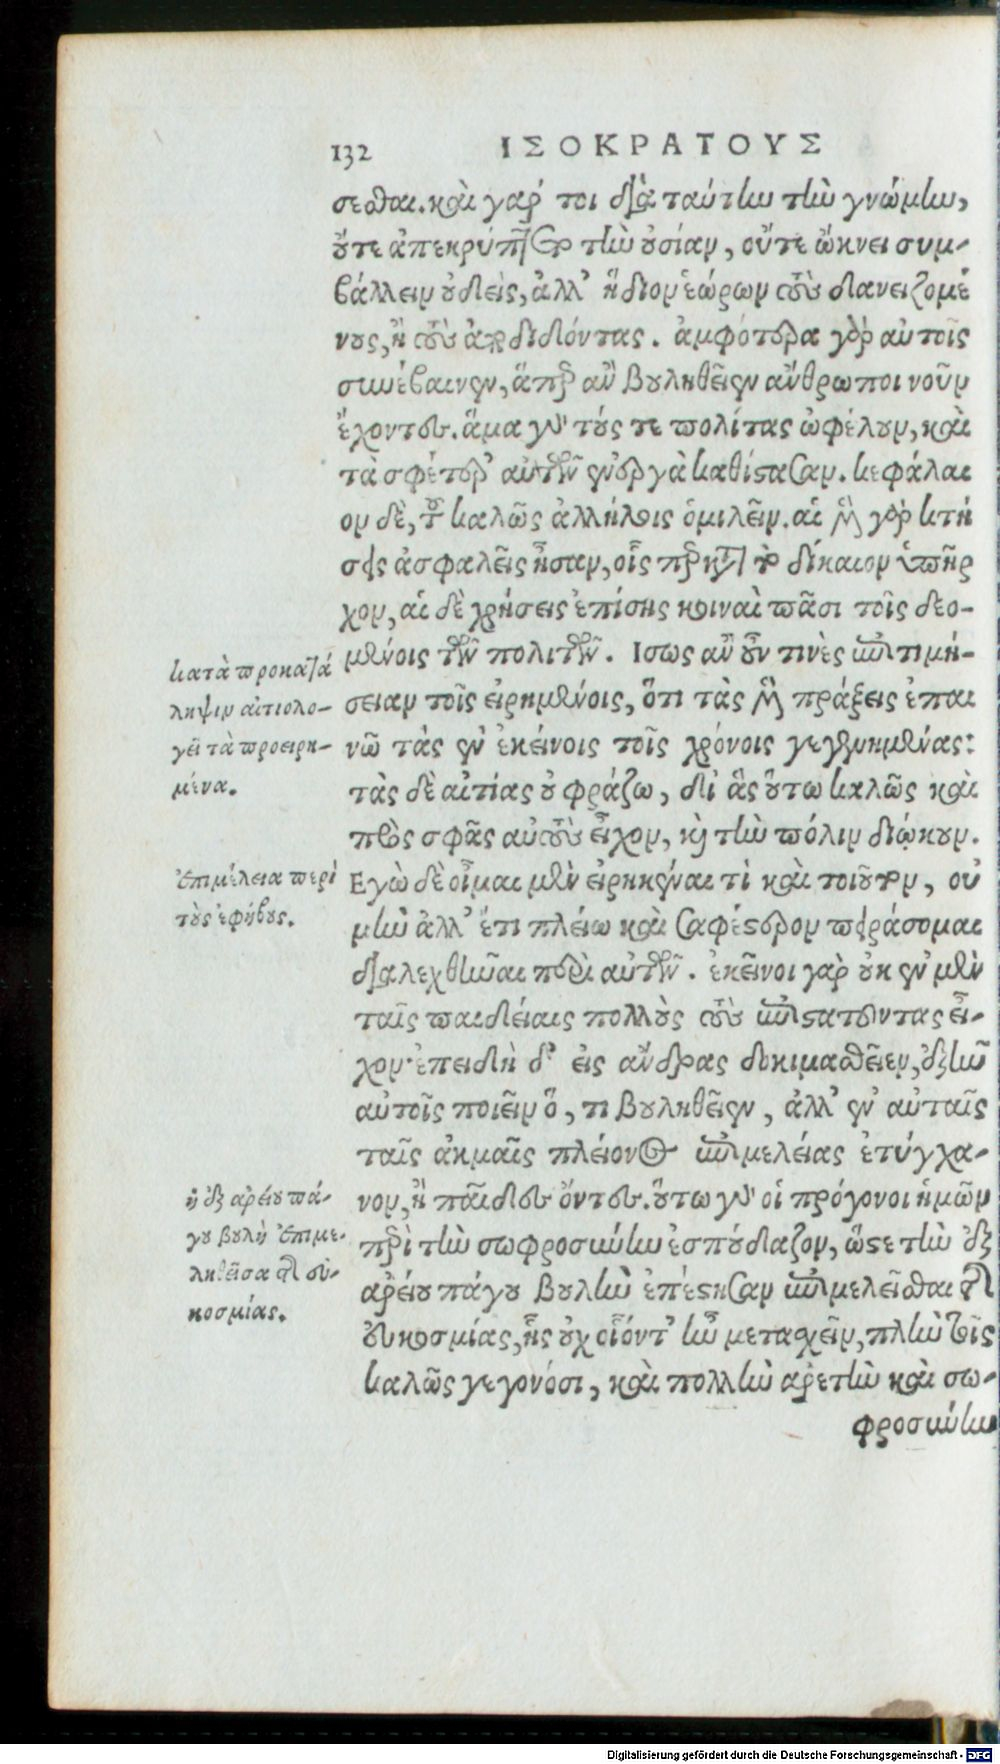 132 ΙΣΟΚΡΑΤΟΥΣ
σεσθαι. καὶ γάρ τοι διὰ ταύτην τὴν γνώμην,
οὔτε ἀπεκρύπτετο τὴν οὐσίαν, οὔτε ὤκνει συμ-
βάλλειν οὐδεὶς, ἀλλ' ἥδιον ἑώρων τοὺς δανειζομέ
νους, ἢ τοὺς ἀποδιδόντας. ἀμφότερα γὰρ αὐτοῖς
συνέβαινεν, ἅπερ ἂν βουληθεῖεν ἄνθρωποι νοῦν
ἔχοντες. ἅμα γὰρ τούς τε πολίτας ὠφέλουν, καὶ
τὰ σφέτερ' αὐτῶν ἐνεργὰ καθίστασαν. κεφάλαι
ον δὲ, τοῦ καλῶς ἀλλήλοις ὁμιλεῖν. αἱ μὲν γὰρ κτή
σεις ἀσφαλεῖς ἦσαν, οἷς περ κατὰ τὸ δίκαιον ὑπῆρ
χον, αἱ δὲ χρήσεις ἐπίσης κοιναὶ πᾶσι τοῖς δεο-
μένοις τῶν πολιτῶν. Ἴσως ἂν οὖν τινὲς ἐπιτιμή-
σειαν τοῖς εἰρημένοις, ὅτι τὰς μὲν πράξεις ἐπαι
νῶ τὰς ἐν ἐκείνοις τοῖς χρόνοις γεγενημένας:
τὰς δὲ αἰτίας οὐ φράζω, δι' ἃς οὕτω καλῶς καὶ
πρὸς σφᾶς αὐτοὺς εἶχον, καὶ τὴν πόλιν διῴκουν.
Ἐγὼ δὲ οἶμαι μὲν εἰρηκέναι τὶ καὶ τοιοῦτον, οὐ
μὴν ἀλλ' ἔτι πλείω καὶ σαφέστερον πειράσομαι
διαλεχθῆναι περὶ αὐτῶν. ἐκεῖνοι γὰρ οὐκ ἐν μὲν
ταῖς παιδείαις πολλοὺς τοὺς ἐπιστατοῦντας εἶ-
χον· ἐπειδὴ δ' εἰς ἄνδρας δοκιμασθεῖεν, ἐξῆν
αὐτοῖς ποιεῖν ὅ, τι βουληθεῖεν, ἀλλ' ἐν αὐταῖς
ταῖς ἀκμαῖς πλείονος ἐπιμελείας ἐτύγχα-
νον, ἢ παῖδες ὄντες. οὕτω γὰρ οἱ πρόγονοι ἡμῶν
περὶ τὴν σωφροσύνην ἐσπούδαζον, ὥστε τὴν ἐξ
ἀρείου πάγου βουλὴν ἐπέστησαν ἐπιμελεῖσθαι τῆς
εὐκοσμίας, ἧς οὐχ οἷόντ' ἦν μετασχεῖν, πλὴν τοῖς
καλῶς γεγονόσι, καὶ πολλὴν ἀρετὴν καὶ σω-
φροσύνην
κατὰ προκατά
ληψιν αἰτιολο-
γεῖ τὰ προειρη-
μένα.
Ἐπιμέλεια περὶ
τοὺς ἐφήβους.
ἡ ἐξ ἀρείου πά-
γου βουλὴ ἐπιμε-
ληθεῖσα τῆς εὐ-
κοσμίας.
Digitalisierung gefördert durch die Deutsche Forschungsgemeinschaft - DFG